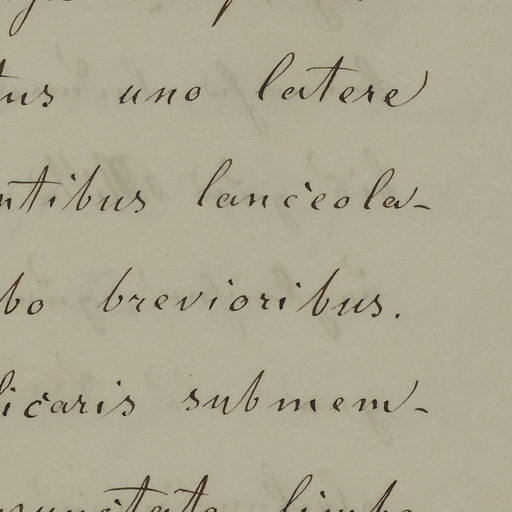 tus uno latere
ntibus lanceola-
bo brevioribus.
licaris submem-
limbo